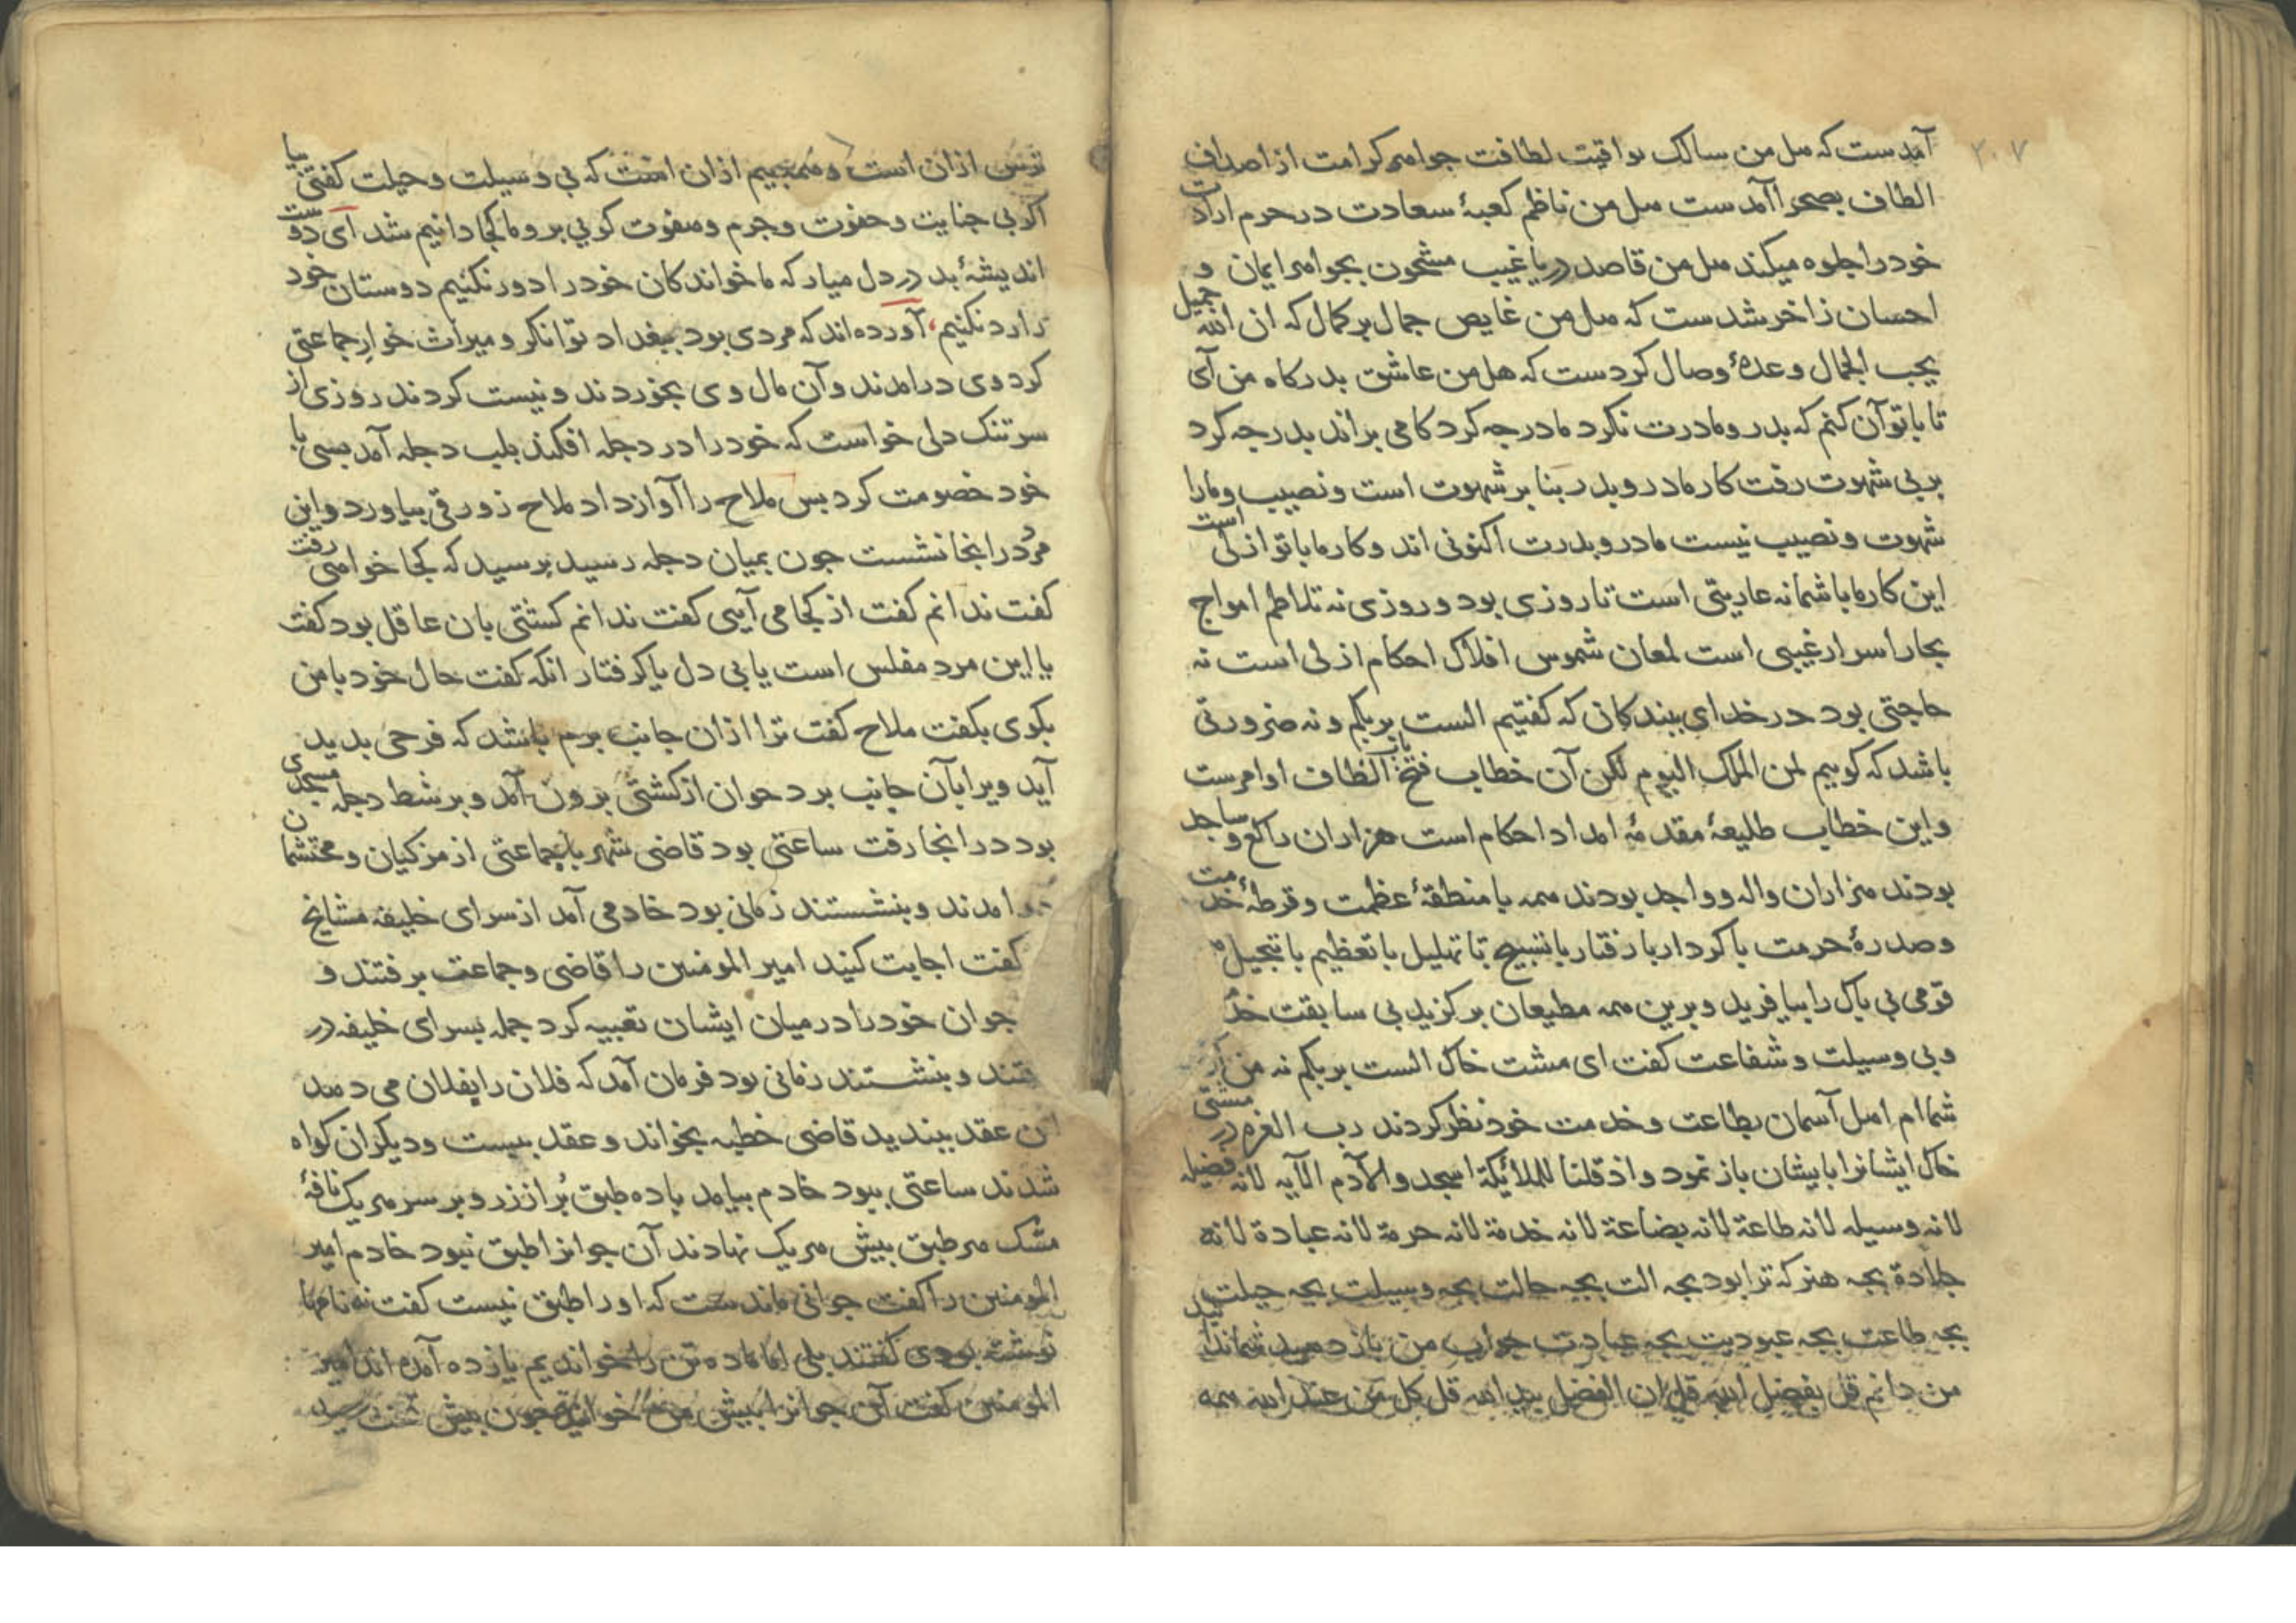 ۲۰۷
آمدست که هل من سالک یواقیت لطافت جواهر کرامت از اصداف
الطاف بصحرا آمدست هل من ناظم کعبهٔ سعادت در حرم ارادت
خود را جلوه میکند هل من قاصد دریا غیب مشحون بجواهر ایمان و
احسان زاخر شدست که هل من غایص جمال بر کمال که ان الله جمیل
یحب الجمال وعدهٔ وصال کردست که هل من عاشق بدرکاه من آی
تا با تو آن کنم که بدر و مادرت نکرد مادر جه کرد کامی براند بدر جه کرد
بر بی شهوت رفت کار مادر و بدر بنا بر شهوت است و نصیب و مارا
شهوت و نصیب نیست مادر و بدرت اکنونی اند و کار ما با تو ازلی است
این کار ما با شما نه عاریتی است تا روزی بود و روزی نه تلاطم امواج
بحار اسرار غیبی است لمعان شموس افلاک احکام ازلی است نه
حاجتی بود در خدای ببندکان که کفتیم الست بربکم و نه ضرورتی
باشد که کوییم لمن الملک الیوم لکن آن خطاب فتح باب الطاف اوامرست
و این خطاب طلیعهٔ مقدمهٔ امداد احکام است هزاران راکع و ساجد
بودند هزاران واله و واجد بودند همه با منطقهٔ عظمت و قرطهٔ خدمت
و صدرهٔ حرمت با کردار با رفتار با تسبیح با تهلیل با تعظیم با تبجیل
قومی بی باک را بیافرید و برین همه مطیعان برکزید بی سابقت
و بی وسیلت و شفاعت کفت ای مشت خاک الست بربکم نه من
شماام اهل آسمان بطاعت و خدمت خود نظر کردند رب العزه در مشتی
خاک ایشانرا بایشان باز نمود و اذ قلنا للملائکة اسجدوا لآدم الآیه لانه فضیله
لانه وسیله لانه طاعة لانه بضاعة لانه خدمة لانه حرمة لانه عبادة لانه
جلادة بجه هنر که ترا بود بجه الت بجه حالت بجه وسیلت بجه حیلت
بجه طاعت بجه عبودیت بجه عبادت جواب من باز دهید
من دانم قل بفضل الله قل ان الفضل بید الله قل کل من عند الله همه
ترس ازان است و همه بیم ازان است که بی وسیلت و حیلت کفتی بیا
اکر بی جنایت و جفوت و جرم و هفوت کویی برو ما کجا دانیم شد ای دوست
اندیشهٔ بد در دل میار که ما خواندکان خود را دور نکنیم دوستان خود
را رد نکنیم، آورده اند که مردی بود ببغداد توانکر و میراث خوار جماعتی
کرد وی درامدند و آن مال وی بخوردند و نیست کردند روزی از
سر تنک دلی خواست که خود را در دجله افکند بلب دجله آمد بسی با
خود خصومت کرد بس ملاح را آواز داد ملاح زورقی بیاورد و این
مرد درانجا نشست جون بمیان دجله رسید برسید که کجا خواهی رفت
کفت ندانم کفت از کجا می آیی کفت ندانم کشتی بان عاقل بود کفت
یا این مرد مفلس است یا بی دل یا کرفتار انکه کفت حال خود با من
بکوی بکفت ملاح کفت ترا ازان جانب برم باشد که فرحی بدید
آید ویرا بآن جانب برد جوان از کشتی برون آمد و بر شط دجله مسجدی
بود درانجا رفت ساعتی بود قاضی شهر با جماعتی از مزکیان و محتشمان
درامدند و بنشستند زمانی بود خادمی آمد از سرای خلیفه مشایخ
کفت اجابت کنید امیر المومنین را قاضی و جماعت برفتند و
جوان خود را در میان ایشان تعبیه کرد جمله بسرای خلیفه در
فتند و بنشستند زمانی بود فرمان آمد که فلان را بفلان می دهند
این عقد ببندید قاضی خطبه بخواند و عقد ببست و دیکران کواه
شدند ساعتی ببود خادم بیامد با ده طبق بُر از زر و بر سر هر یک نافهٔ
مشک هر طبق بیش هر یک نهادند آن جوانرا طبق نبود خادم امیر
المومنین را کفت جوانی ماندست که او را طبق نیست کفت نه نامها
نوشته بودی کفتند بلی اما ما ده تن را خواندیم یازده آمده اند امیر
المومنین کفت آن جوانرا بیش من خوانید جون بیش تخت رسید